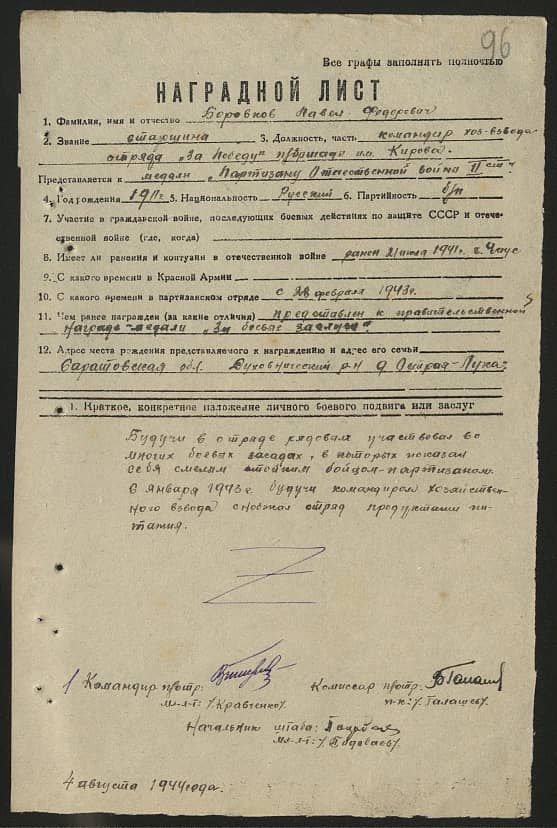 96
Все графы заполнять полностью
НАГРАДНОЙ ЛИСТ
1. Фамилия, имя и отчество Боровков Павел Федорович
2. Звание старшина 3. Должность, часть командир хоз-взвода
отряда "За Победу" п/бригады им. Кирова.
Представляется к медали "Партизану Отечественной войны II ст."
4. Год рождения 1911г. 5. Национальность Русский 6. Партийность б/п
7. Участие в гражданской войне, последующих боевых действиях по защите СССР и отече-
ственной войне (где, когда)
8. Имеет ли ранения и контузии в отечественной войне ранен 21 июля 1941г. г. Чаус
9. С какого времени в Красной Армии
10. С какого времени в партизанском отряде с 28 февраля 1943г.
11. Чем ранее награжден (за какие отличия) представлен к правительственной
награде-медали "За боевые заслуги".
12. Адрес места рождения представляемого к награждению и адрес его семьи
Саратовская обл. Духовницкий р-н д. Острая-Лука.
1. Краткое, конкретное изложение личного боевого подвига или заслуг
Будучи в отряде рядовым участвовал во
многих боевых засадах, в которых показал
себя смелым стойким бойцом-партизаном.
С января 1943г. будучи командиром хозяйствен-
ного взвода снабжал отряд продуктами пи-
тания.
Командир п/отр: Комиссар п/отр:
мл-л-т: /Кравченко/ /Талашев/
Начальник штаба:
мл-л-т:
4 августа 1944 года.